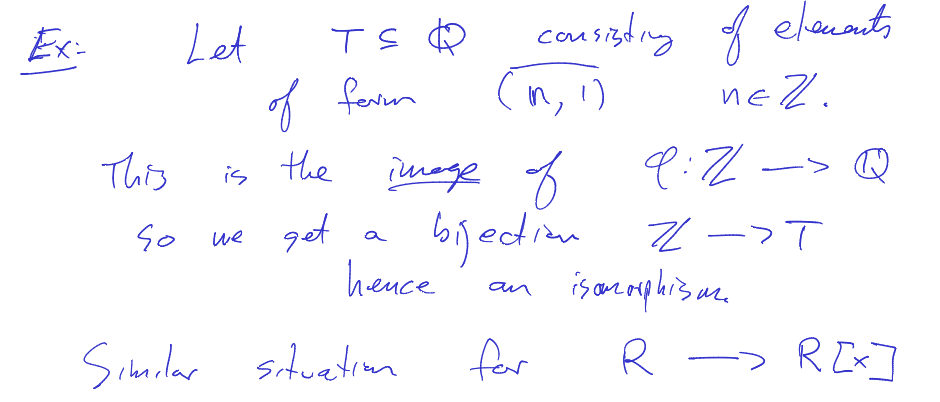 Ex:- Let T ⊆ ℚ consisting of elements
of form \overline{(n, 1)} n ∈ ℤ.
This is the image of φ: ℤ —> ℚ
so we get a bijection ℤ —> T
hence an isomorphism.
Similar situation for R —> R[x]